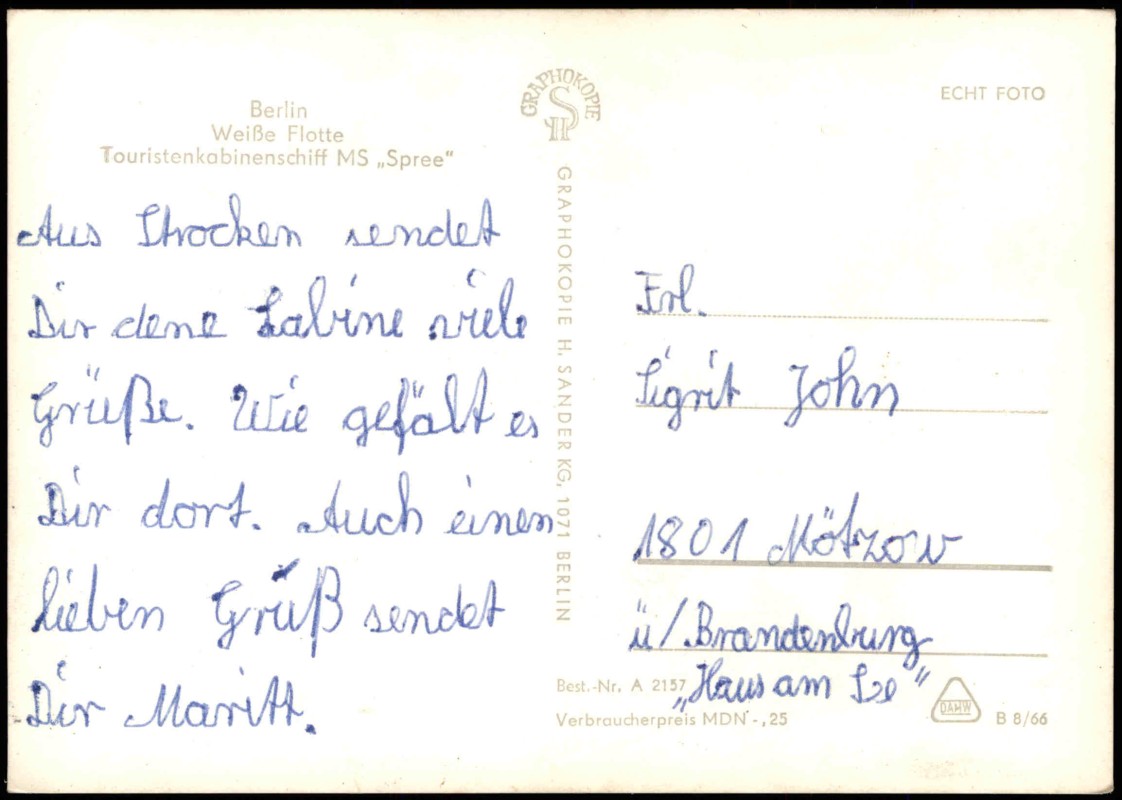 Berlin
Weiße Flotte
Touristenkabinenschiff MS „Spree“
Aus Strocken sendet
Dir dene Sabine viele
Grüße. Wie gefält es
Dir dort. Auch einen
lieben Gruß sendet
Dir Maritt.
GRAPHOKOPIE
GRAPHOKOPIE H. SANDER KG, 1071 BERLIN
ECHT FOTO
Frl.
Sigrit John
1801 Mötzow
ü/Brandenburg
„Haus am See“
Best.-Nr. A 2157
Verbraucherpreis MDN -,25
DAMW
B 8/66